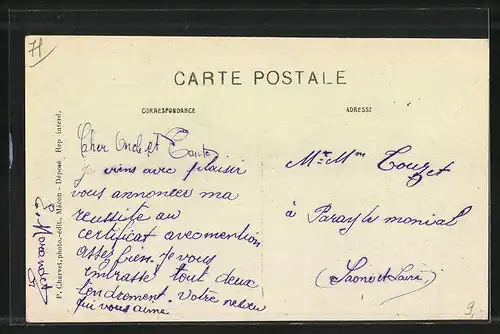 71
CARTE POSTALE
CORRESPONDANCE
ADRESSE
Cher Oncle et Tante
je viens avec plaisir
vous annoncer ma
reussite au
certificat avec mention
assez bien. je vous
embrasse tout deux
tendrement. Votre neveu
qui vous aime
Mr Mme Touzet
à Paray le monial
(Saone et Loire)
P. Charvet, photo-édit., Mâcon - Déposé Rep. interd.
9.